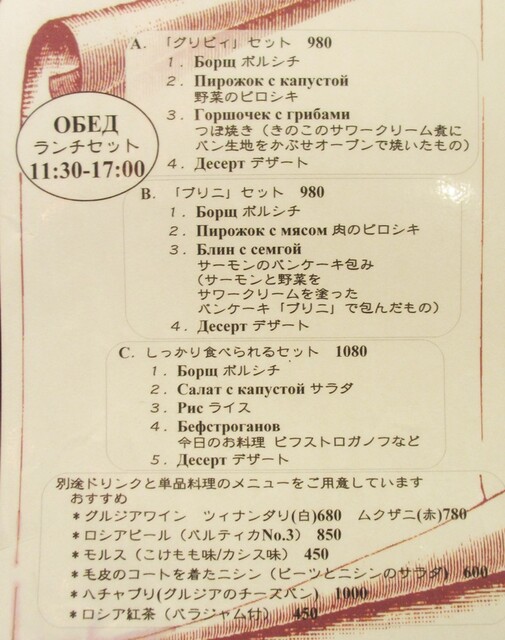 ОБЕД
ランチセット
11:30-17:00
A. 「グリビィ」セット 980
1. Борщ ボルシチ
2. Пирожок с капустой
野菜のピロシキ
3. Горшочек с грибами
つぼ焼き（きのこのサワークリーム煮に
パン生地をかぶせオーブンで焼いたもの）
4. Десерт デザート
B. 「ブリニ」セット 980
1. Борщ ボルシチ
2. Пирожок с мясом 肉のピロシキ
3. Блин с семгой
サーモンのパンケーキ包み
（サーモンと野菜を
サワークリームを塗った
パンケーキ「ブリニ」で包んだもの）
4. Десерт デザート
C. しっかり食べられるセット 1080
1. Борщ ボルシチ
2. Салат с капустой サラダ
3. Рис ライス
4. Бефстроганов
今日のお料理 ビフストロガノフなど
5. Десерт デザート
別途ドリンクと単品料理のメニューをご用意しています
おすすめ
＊グルジアワイン ツィナンダリ(白)680 ムクザニ(赤)780
＊ロシアビール（バルティカNo.3） 850
＊モルス（こけもも味/カシス味） 450
＊毛皮のコートを着たニシン（ビーツとニシンのサラダ） 600
＊ハチャプリ(グルジアのチーズパン) 1000
＊ロシア紅茶（バラジャム付） 450